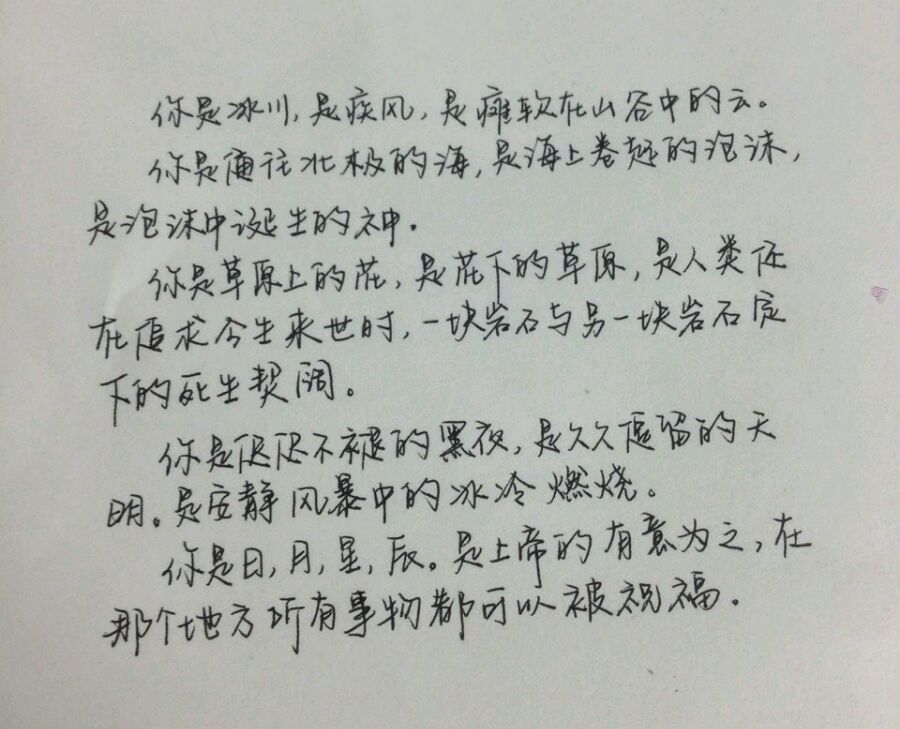 你是冰川,是疾风,是瘫软在山谷中的云。
你是通往北极的海,是海上卷起的泡沫,
是泡沫中诞生的神.
你是草原上的花,是花下的草原,是人类还
在追求今生来世时,一块岩石与另一块岩石定
下的死生契阔。
你是迟迟不褪的黑夜,是久久逗留的天
明。是安静风暴中的冰冷燃烧。
你是日,月,星,辰。是上帝的有意为之,在
那个地方所有事物都可以被祝福.